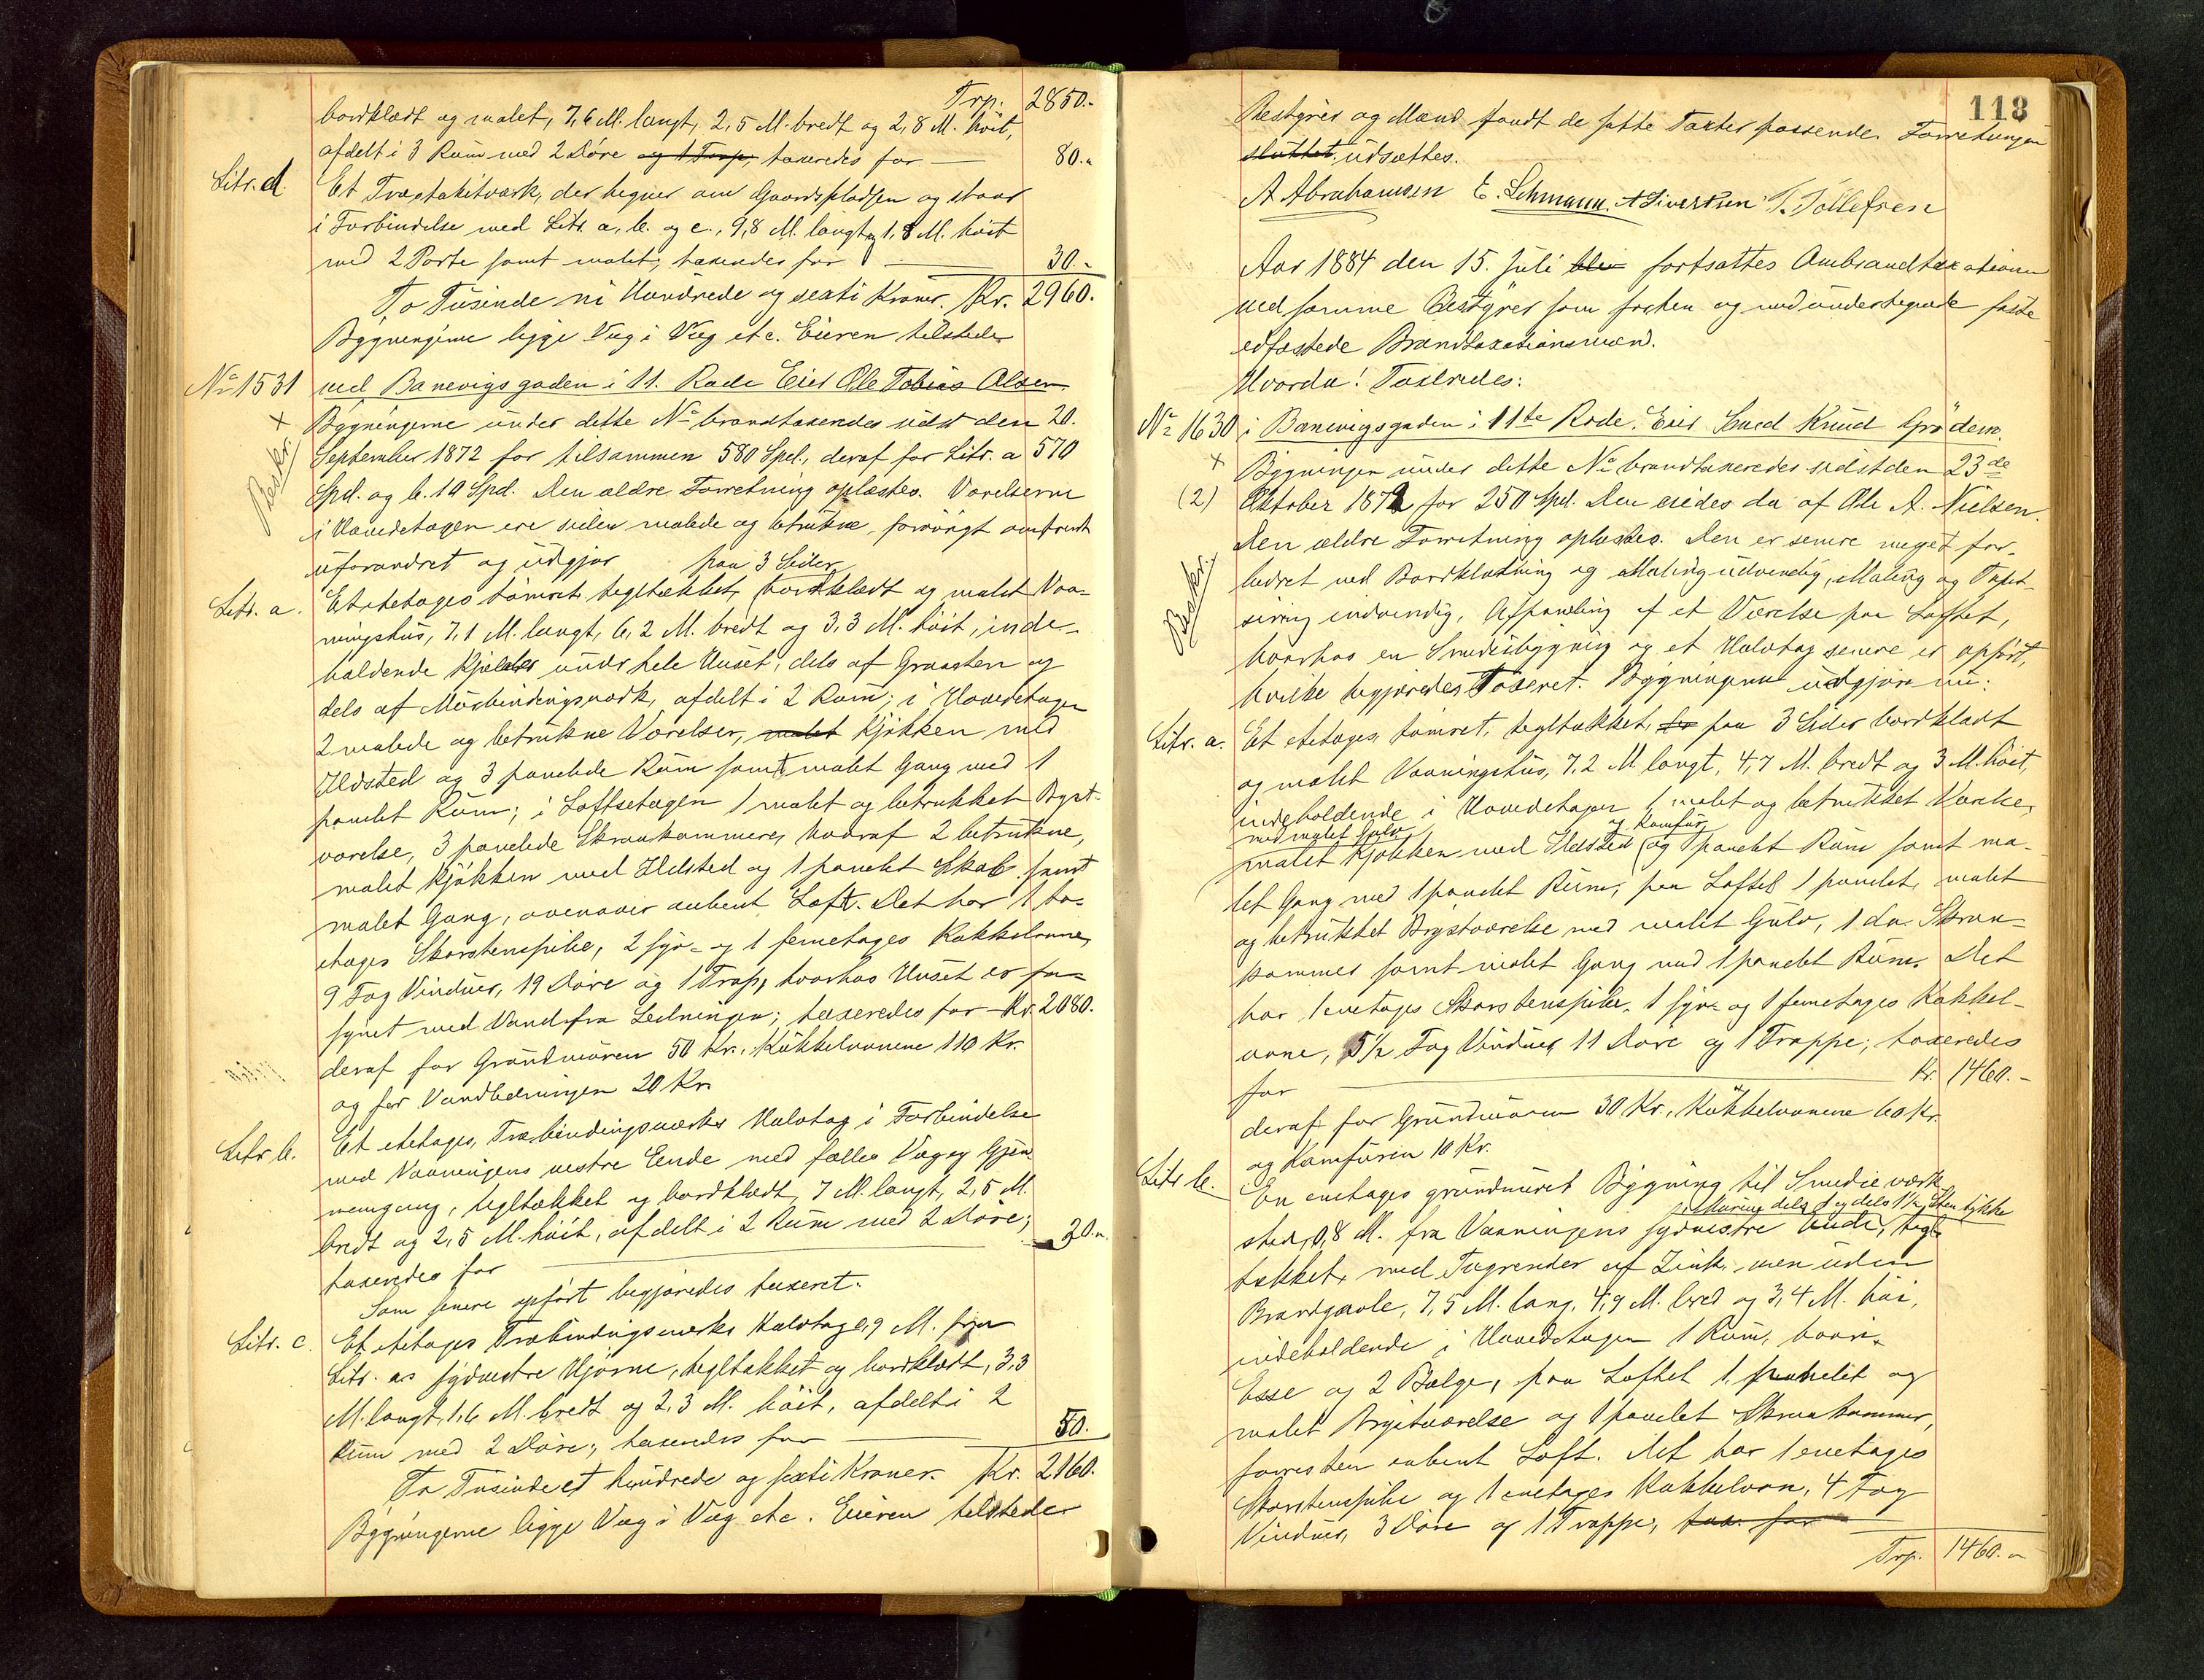 Trp. 2850.-
bordklædt og malet, 7,6 M. langt, 2,5 M. bredt og 2,8 M. höit,
afdelt i 3 Rum med 2 Döre og 1 Trap, taxeredes for — 80.-
Litr. d. Et Træstakitværk, der hegner om Gaardspladsen og staar
i Forbindelse med Litr. a, b. og c., 9,8 M. langt og 1,8 M. höit
med 2 Porte samt malet; taxeredes for — 30.-
To Tusinde ni Hundrede og sexti Kroner. Kr. 2960.
Bygningerne ligge Væg i Væg etc. Eieren tilstede
No 1531 ved Banevigsgaden i 11. Rode Eier Ole Tobias Olsen.
+ Bygningerne under dette No brandtaxeredes sidst den 20.
Beskr. September 1872 for tilsammen 580 Spd., deraf for Litr. a 570
Spd. og b. 10 Spd. Den ældre Forretning oplæstes. Værelserne
i Hovedetagen ere siden malede og betrukne, forövrigt omtrent
uforandret og udgjör
paa 3 Sider
Litr. a. Et etetages tömret, tegltækket, bordklædt og malet Vaa-
ningshus, 7,1 M. langt, 6,2 M. bredt og 3,3 M. höit, inde-
holdende Kjelder under hele Huset, dels af Graasten og
dels af Murbindingsværk, afdelt i 2 Rum; i Hovedetagen
2 malede og betrukne Værelser, malet Kjökken med
Ildsted og 3 panelede Rum samt malet Gang med 1
panelet Rum; i Loftsetagen 1 malet og betrukket Byst-
værelse, 3 panelede Skraakammere, hvoraf 2 betrukne,
malet Kjökken med Ildsted og 1 panelet Skab samt
malet Gang, ovenover aabent Loft. Det har 1 to-
etages Skorstenspibe, 2 fyr- og 1 femetages Kakkelovne,
9 Fag Vinduer, 19 Döre og 1 Trap, hvorhos Huset er for-
synet med Vand fra Ledningen; taxeredes for — Kr. 2080.
deraf for Grundmuren 50 Kr., Kakkelovnene 110 Kr.
og for Vandledningen 20 Kr.
Litr b. Et etetages, Træbindingsværks Halvtag i Forbindelse
med Vaaningens vestre Ende med fælles Væg og Gjen-
nemgang, tegltækket og bordklædt, 7 M. langt, 2,5 M.
bredt og 2,5 M. höit, afdelt i 2 Rum med 2 Döre;
taxeredes for — 30.-
Som senere opfört begjæredes taxeret.
Litr. c. Et etetages Træbindingsværks Halvtag 1,9 M. fra
Litr. as sydvestre Hjörne, tegltækket og bordklædt, 3,3
M. langt, 1,6 M. bredt og 2,3 M. höit, afdelt i 2
Rum med 2 Döre; taxeredes for — 50.
To Tusinde et hundrede og sexti Kroner. Kr. 2160.
Bygningerne ligge Væg i Væg etc. Eieren tilstede
118
Bestyrer og Mænd fandt de satte Taxter passende. Forretningen
sluttet. udsættes.
A Abrahamsen E. Lehmann. A Sivertsen T. Tollefsen
Aar 1884 den 15. Juli blev fortsattes Ombrandtaxationen
ved samme Bestyrer som forhen og med undertegnede faste
edfæstede Brandtaxationsmænd.
Hvorda! Taxeredes:
No 1630 i Banevigsgaden i 11te Rode. Eier Smed Knud Grödem.
+ Bygningen under dette No brandtaxeredes sidst den 23de
(2) Oktober 1872 for 250 Spd. Den eiedes da af Ole A. Nielsen.
Beskr. + Den ældre Forretning oplæstes. Den er senere meget for-
bedret ved Bordklædning og Maling udvendig, Maling og Tapet-
sering indvendig, Afpaneling af et Værelse paa Loftet,
hvorhos en Smediebygning og et Halvtag senere er opfört,
hvilke begjæredes Taxeret. Bygningerne udgjöre nu:
Litr. a. Et etetages tömret, tegltækket, paa 3 Sider bordklædt
og malet Vaaningshus, 7,2 M. langt, 4,7 M. bredt og 3 M. höit,
indeholdende i Hovedetagen 1 malet og betrukket Værelse,
med malet Gulv og Komfur,
malet Kjökken med Ildsted og 1 panelet Rum samt ma-
let Gang med 1 panelet Rum; paa Loftet 1 panelet, malet
og betrukket Brystværelse med malet Gulv, 1 do. Skraa-
kammer samt malet Gang med 1 panelet Rum. Det
har 1 enetages Skorstenspibe, 1 fyr- og 1 femetages Kakkel-
ovne, 5 1/2 Fag Vinduer, 11 Döre og 1 Trappe; taxeredes
for — Kr. 1460.-
deraf for Grundmuren 30 Kr., Kakkelovnene 60 Kr.
og Komfuren 10 Kr.
Litr b. En enetages grundmuret Bygning til Smedieværk-
Murene dels 1 og dels 1 1/2 Sten tykke
sted, 0,8 M. fra Vaaningens sydvestre Ende, tegl-
tækket, med Tagrender af Zink, men uden
Brandgavle, 7,5 M. lang, 4,9 M. bred og 3,4 M. höi,
indeholdende i Hovedetagen 1 Rum, hvori
Esse og 2 Bælge, paa Loftet 1 panelet og
malet Brystværelse og 1 panelet Skraakammer,
forresten aabent Loft. Det har 1 enetages
Skorstenspibe og 1 enetages Kakkelovn, 4 Fag
Vinduer, 3 Döre og 1 Trappe, tax. for
Trp. 1460.-